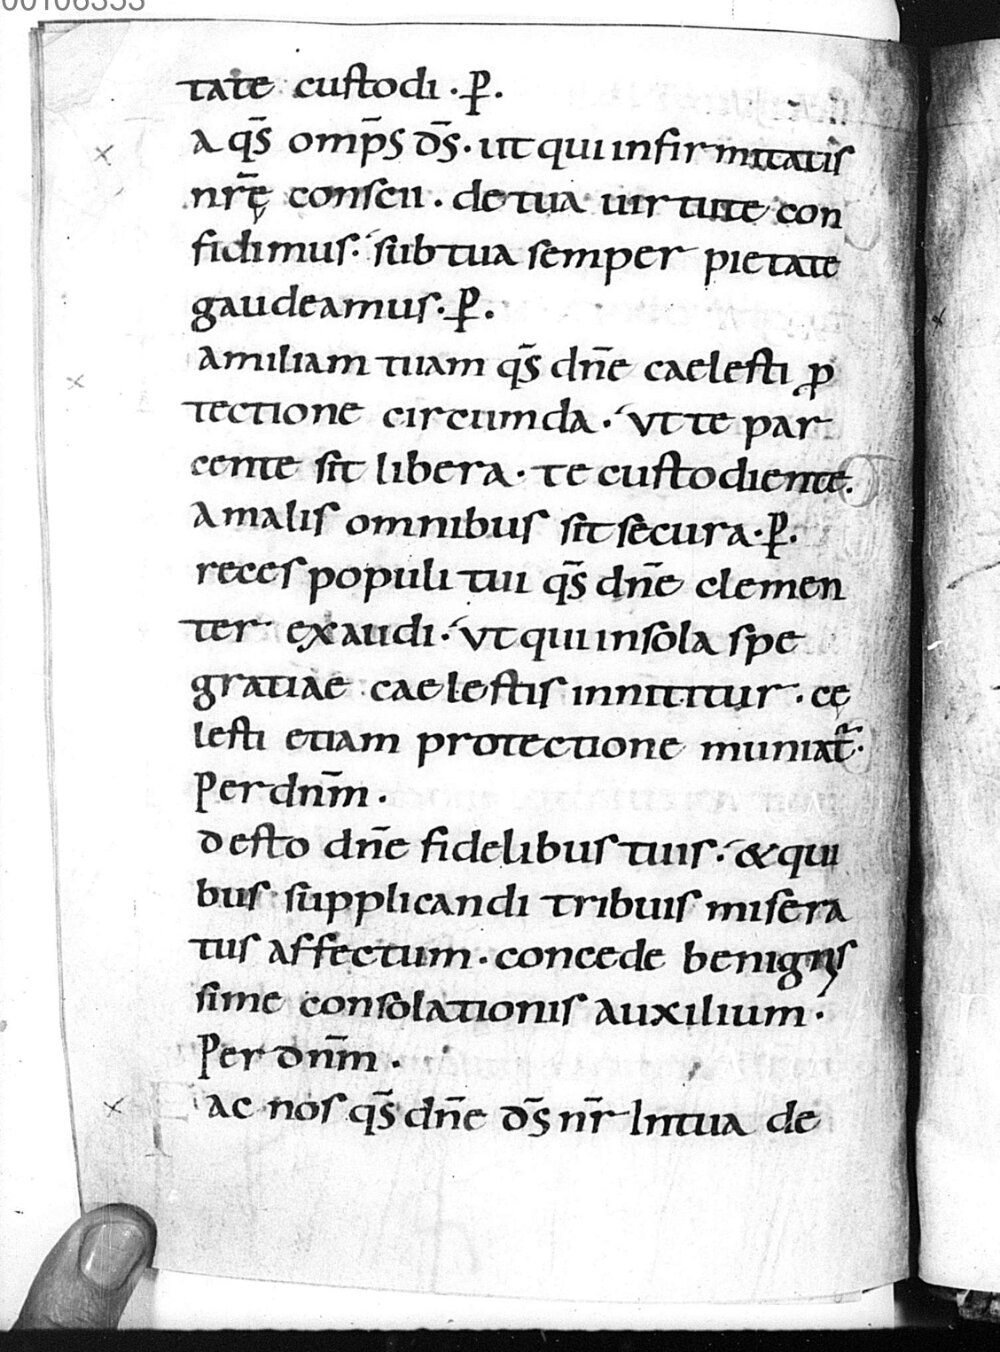 00106355
tate custodi · p̄.
a q̄s omp̄s d̄s · ut qui infirmitatis
nr̄ę conscii · de tua uirtute con
fidimus · sub tua semper pietate
gaudeamus · p̄.
amiliam tuam q̄s dn̄e caelesti ꝓ
tectione circumda · ut te par
cente sit libera · te custodiente.
A malis omnibus sit secura · p̄.
reces populi tui q̄s dn̄e clemen
ter exaudi · ut qui in sola spe
gratiae caelestis innititur · cę
lesti etiam protectione muniat᷑ ·
Per dn̄m ·
desto dn̄e fidelibus tuis · & qui
bus supplicandi tribuis misera
tus affectum · concede benignis
sime consolationis auxilium ·
Per dn̄m ·
ac nos q̄s dn̄e d̄s nr̄ In tua de